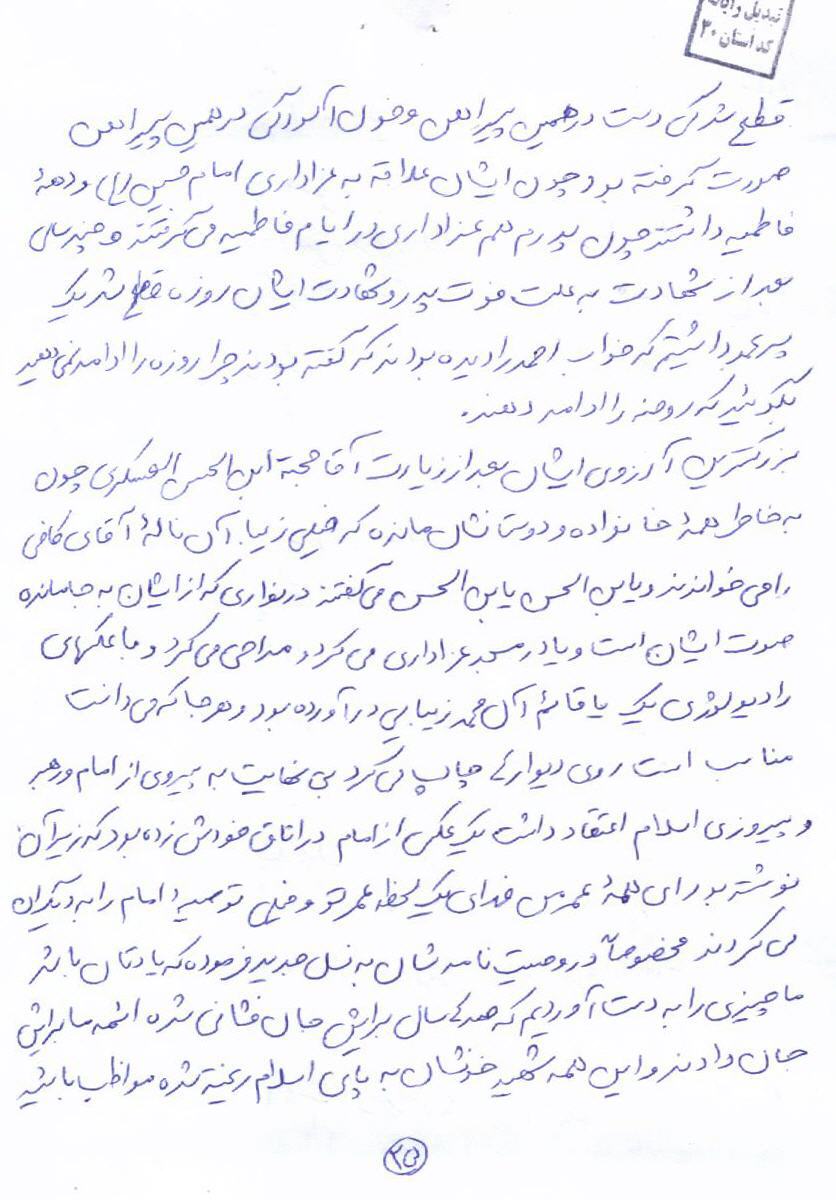 تبدیل رایانه
کد استان ۳۰
قطع شدگی دست در همین پیراهن و خون آلودگی در همین پیراهن
صورت گرفته بود و چون ایشان علاقه به عزاداری امام حسین (ع) و دههٔ
فاطمیه داشتند چون پدرم هم عزاداری در ایام فاطمیه می گرفتند و چند سالی
بعد از شهادت به علت فوت پدر و شهادت ایشان روزه قطع شد یک
پسر عمه داشتیم که خواب احمد را دیده بودند که گفته بودند چرا روزه را ادامه نمی دهید
بگوئید که روضه را ادامه دهند.
بزرگترین آرزوی ایشان بعد از زیارت آقا حجة ابن الحسن العسکری چون
به خاطر همهٔ خانواده و دوستانشان مانده که خیلی زیبا آن نالهٔ آقای کافی
را می خواندند و یابن الحسن یابن الحسن می گفتند در نواری که از ایشان به جا مانده
صوت ایشان است و یا در مسجد عزاداری می کرد و مداحی می کرد و با عکسهای
رادیولوژی یک یا قائم آل محمد زیبایی در آورده بود و هر جا که می دانست
مناسب است روی دیوار چاپ می کرد بی نهایت به پیروی از امام و رهبر
و پیروزی اسلام اعتقاد داشت یک عکس از امام در اتاق خودش زده بود که زیر آن
نوشته بود ای همهٔ عمر من فدای یک لحظه عمر تو و خیلی توصیهٔ امام را به دیگران
می کردند مخصوصاً در وصیت نامه شان به نسل جدید فرموده که یادتان باشد
ما چیزی را به دست آوردیم که صدها سال برایش جان فشانی شده ائمه ما برایش
جان دادند و این همه شهید خونشان به پای اسلام ریخته شده مواظب باشید
۳۵